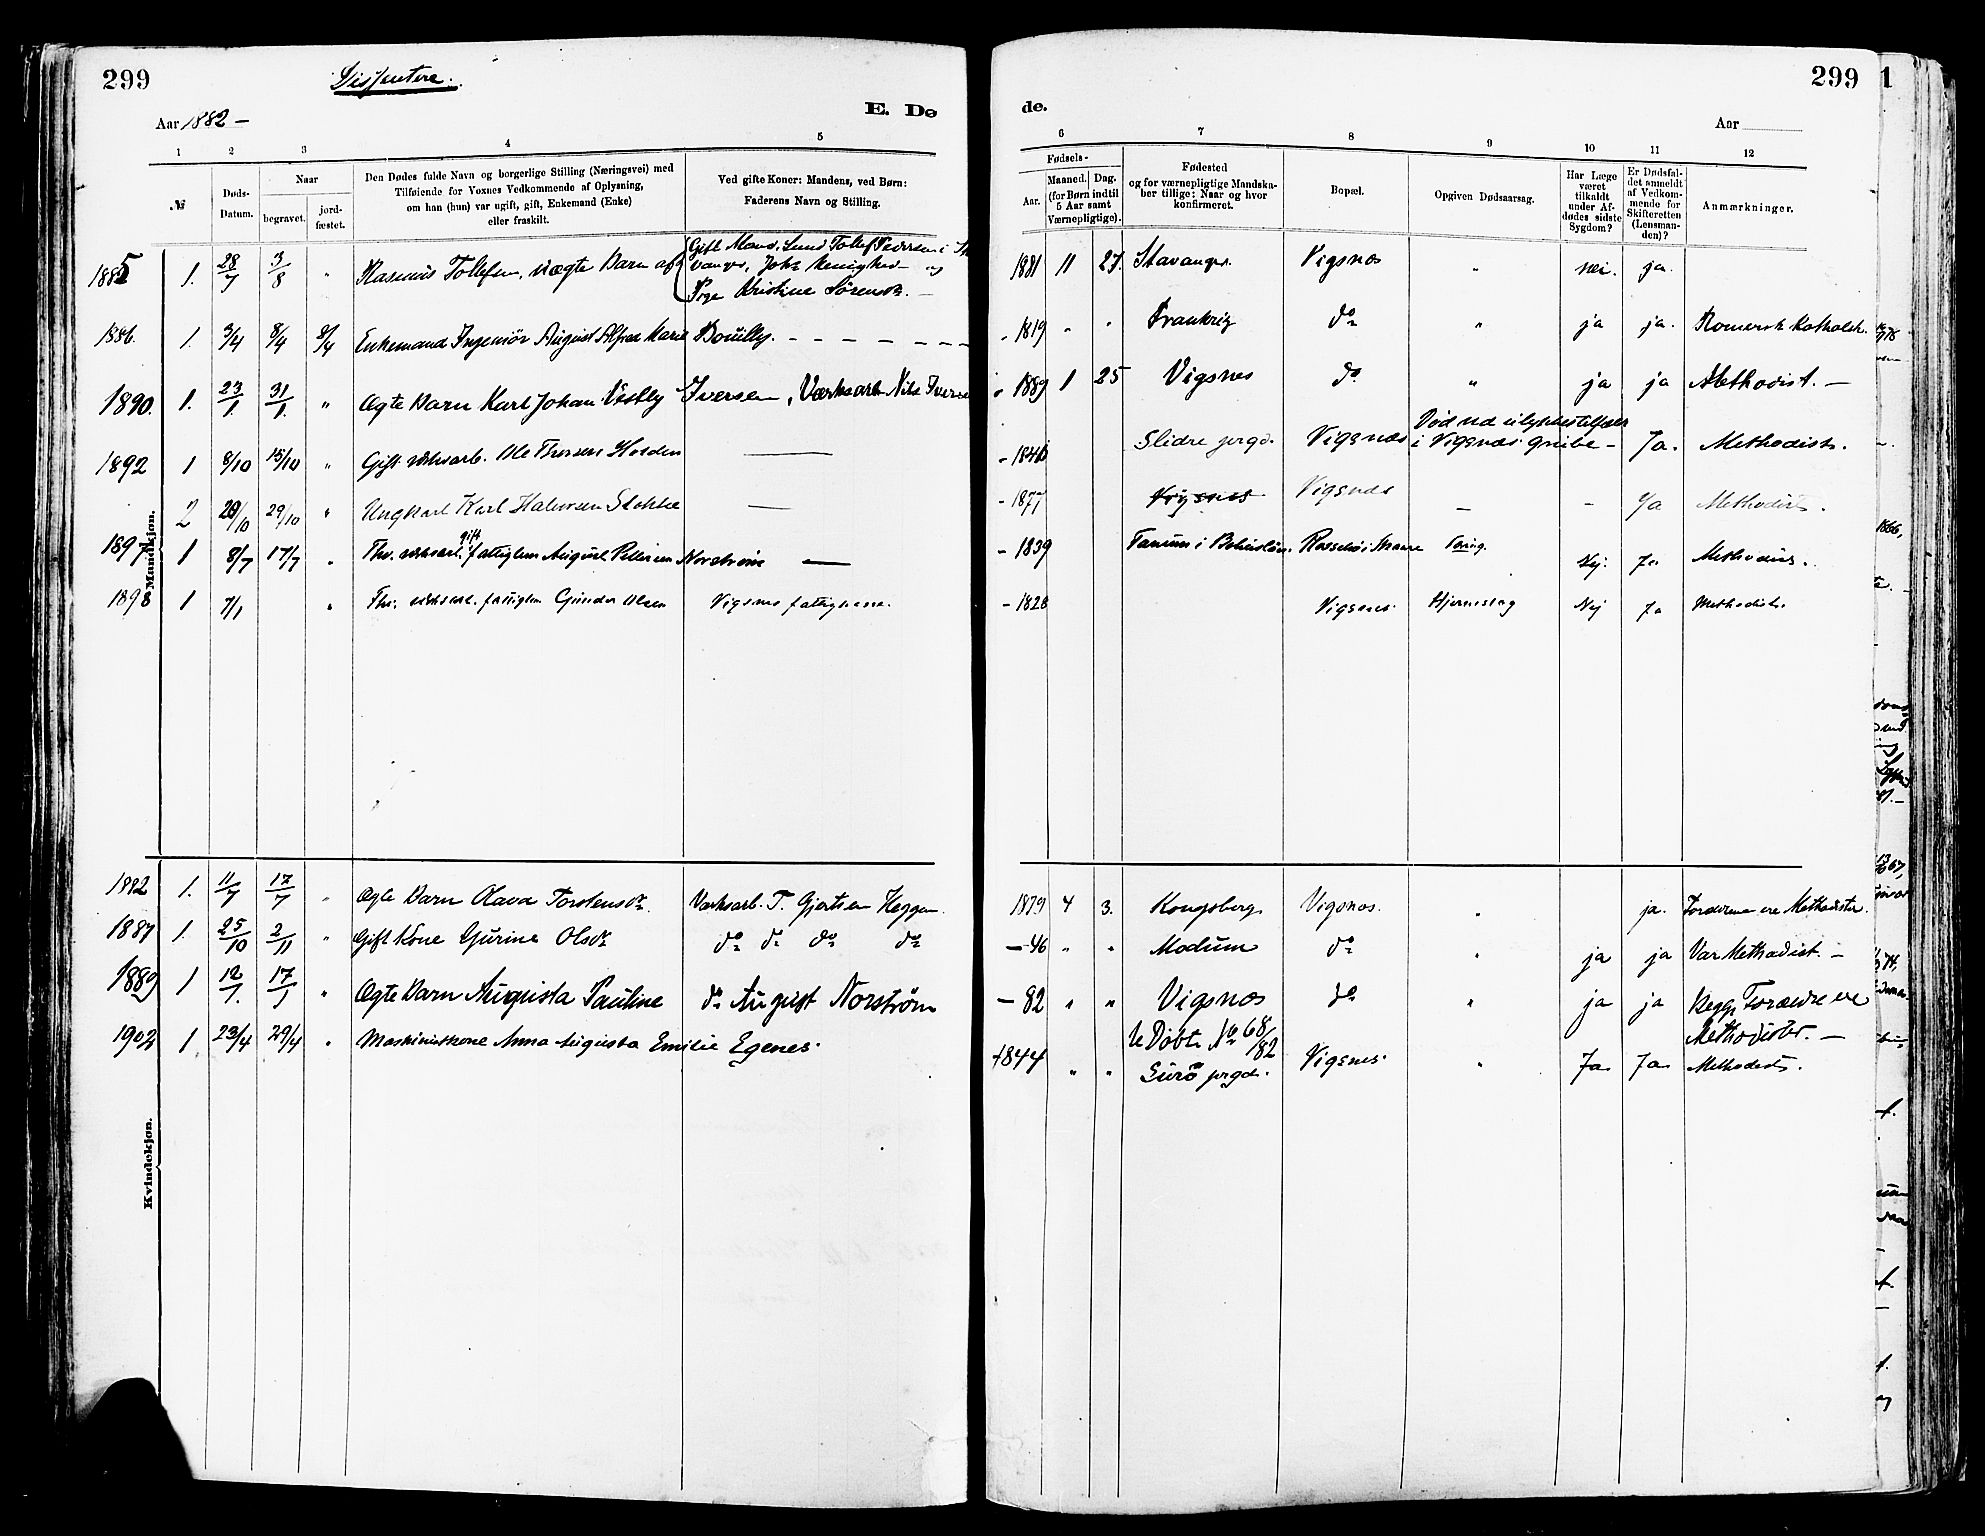 299
Dissentere.
E. Dø
Aar 1882 –
1 2 3 4 5
№
Døds-Datum.
Naar
begravet.
jord-fæstet.
Den Dødes fulde Navn og borgerlige Stilling (Næringsvei) med
Tilføiende for Voxnes Vedkommende af Oplysning,
om han (hun) var ugift, gift, Enkemand (Enke)
eller fraskilt.
Ved gifte Koner: Mandens, ved Børn:
Faderens Navn og Stilling.
Mandkjøn.
1885 1. 28/7 3/8 " Rasmus Tollefsen, uægte Barn af Gift Mand, Tollef Pedersen i
Pige Kristine
1886. 1. 3/4 8/4 8/4 Enkemand Ingeniør August Alfred Marie Bouilly. – – – – – –
1890. 1. 23/1. 31/1. " Ægte Barn Karl Johan Vestby Iversen, Værksarb. Nils Iversen
1892 1 8/10 15/10 " Gift Ole Holden —
2 20/10 29/10 " Ungkarl Karl Halvorsen Stokke —
1897 1 8/7 17/7 " gift fattiglem August Pettersen Norstrøm —
1898 1 7/1 " fattiglem Gunder Olsen Vigsnes
Kvindekjøn.
1882 1. 11/7 17/7 " Ægte Barn Olava Torstensdr. Værksarb. T. Gjertsen Heggen.
1887 1. 25/10 2/11 " Gift Kone Gurine Olsdr do do do do
1889 1 12/1. 17/1 " Ægte Barn Augusta Pauline do August Norstrøm
1902 1 23/4 29/4 " Maskinistkone Anna Augusta Emilie Egenes.
de.
299
Aar
6 7 8 9 10 11 12
Fødsels-
Aar.
Maaned. Dag.
(for Børn indtil
5 Aar samt
Værnepligtige).
Fødested
og for værnepligtige Mandska-
ber tillige: Naar og hvor
konfirmeret.
Bopæl.
Opgiven Dødsaarsag.
Har Læge
været
tilkaldt
under Af-
dødes sidste
Sygdom?
Er Dødsfal-
det anmeldt
af Vedkom-
mende for
Skifteretten
(Lensman-
den)?
Anmærkninger.
1881 11 27. Stavanger. Vigsnæs " nei. ja.
1819 " " Frankrig do " ja ja. Romersk Katholsk.
1889 1 25 Vigsnes do " ja ja Methodist. –
1846 Slidre prgd. Vigsnæs Død ved ulykkestilfælde
i Vigsnæs Grube – Ja. Methodist.
1877 Vigsnes Vigsnæs – – Ja Methodist.
1839 Tanum i Bohuslän. Nej. Ja Methodist.
1828 Vigsnes Hjerneslag Nej Ja Methodist.
1879 4 3. Kongsberg Vigsnæs. " ja. Forældrene ere Methodister.
– 46 " " Modum do " ja ja Var Methodist. –
– 82 " " Vigsnæs do " ja ja Begge Forældre ere
Methodister. –
Døbte No 68/82
1844 " " Surø prgd. Vigsnes. " Ja Ja Methodist.